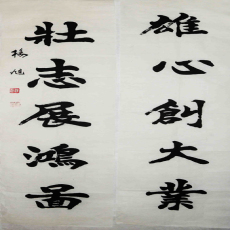 雄心創大業
壯志展鴻圖
楊旭